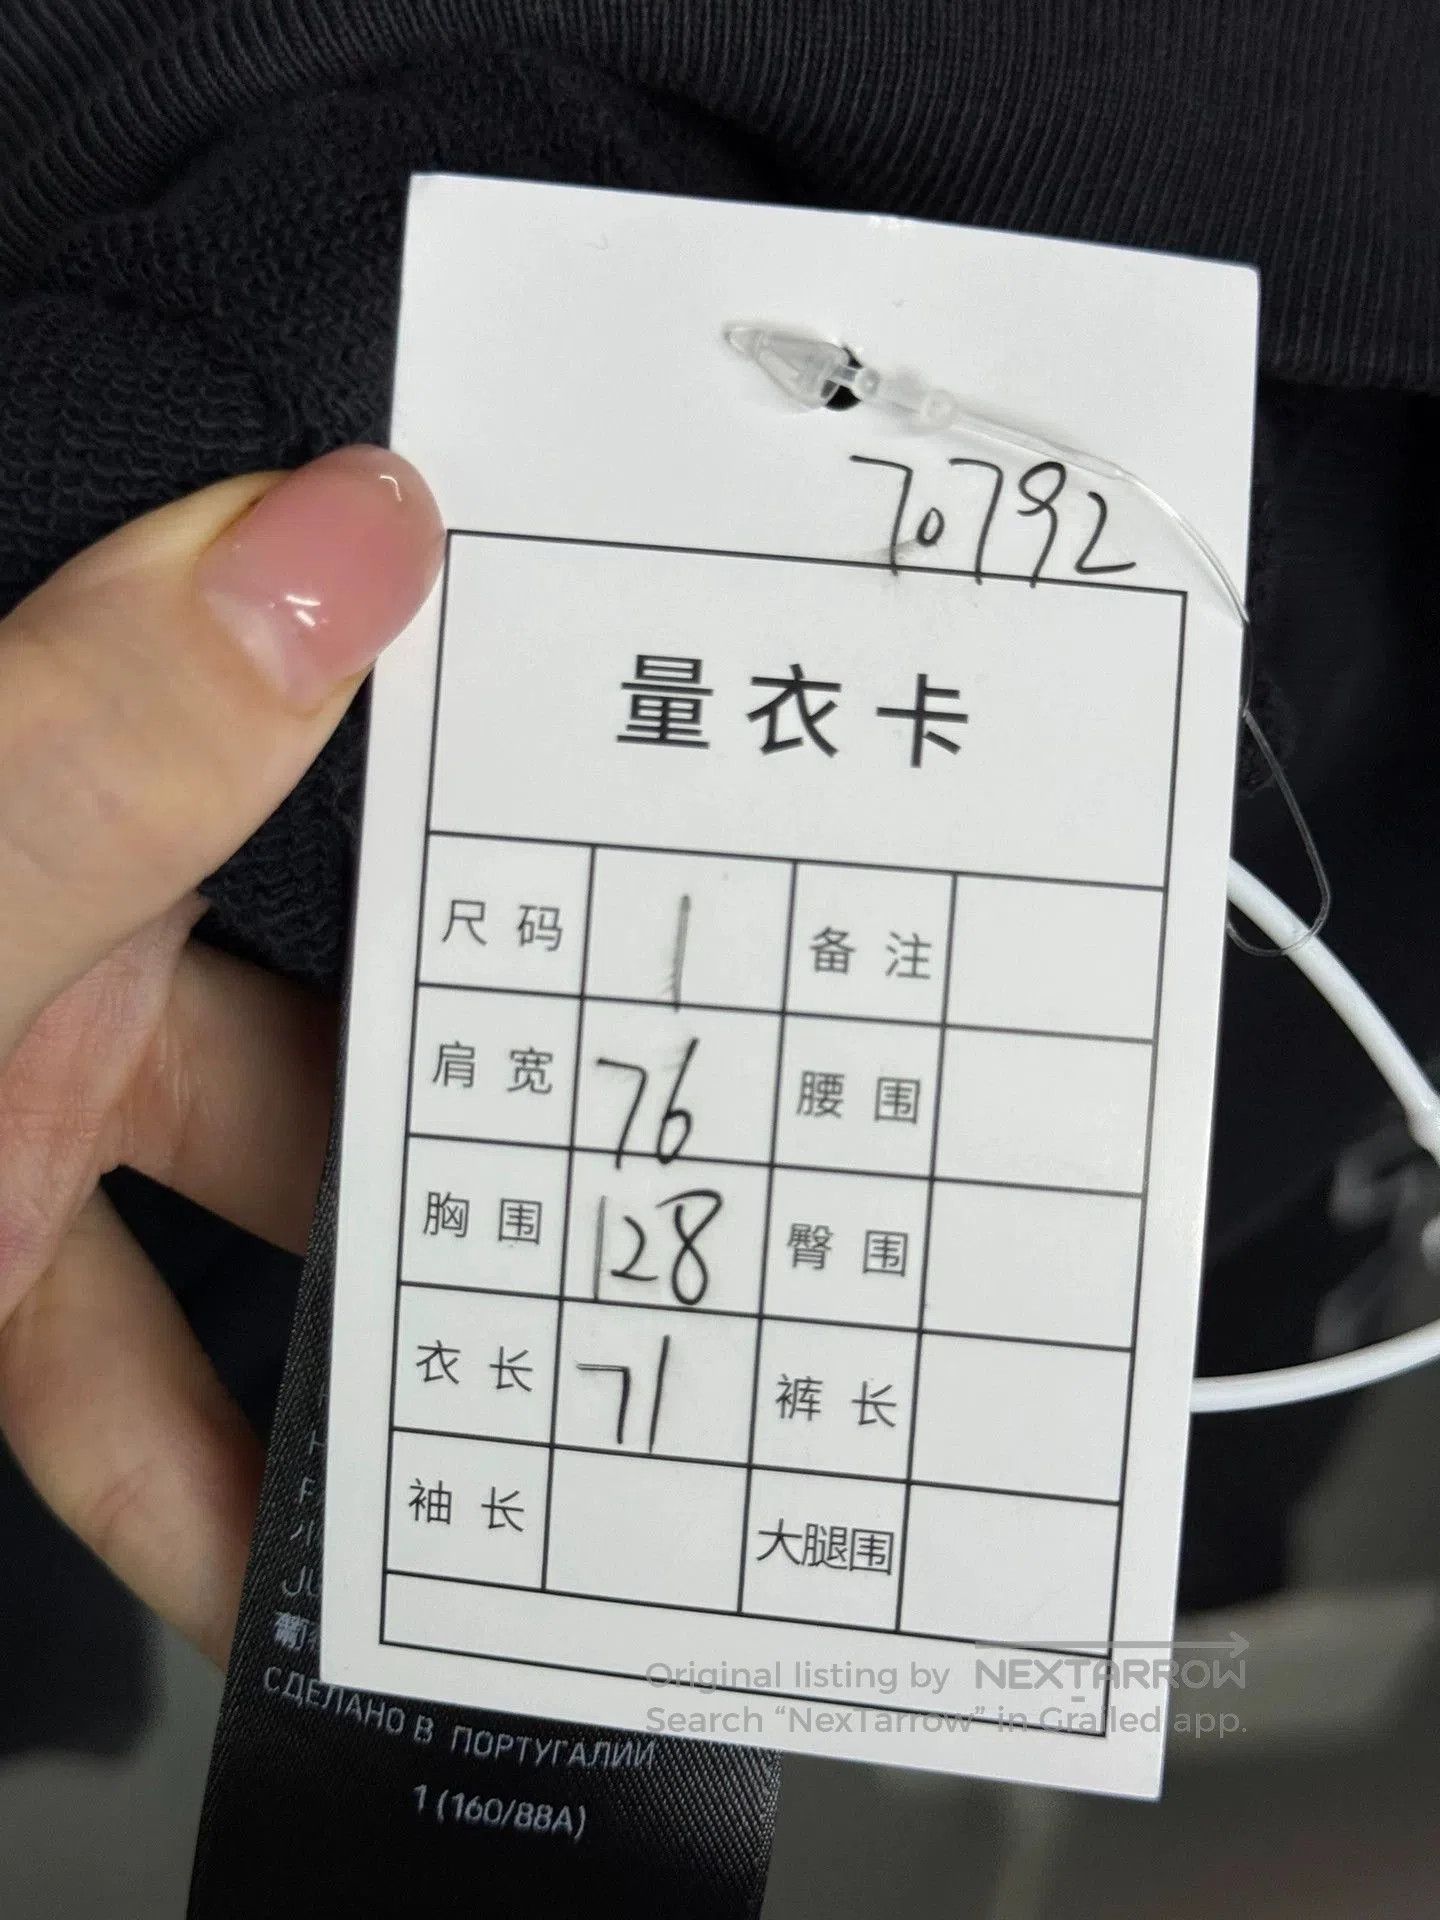 70792
量衣卡
尺码 1 备注
肩宽 76 腰围
胸围 128 臀围
衣长 71 裤长
袖长 大腿围
Original listing by NEXTARROW
Search “NexTarrow” in Grailed app.
СДЕЛАНО В ПОРТУГАЛИИ
1 (160/88A)